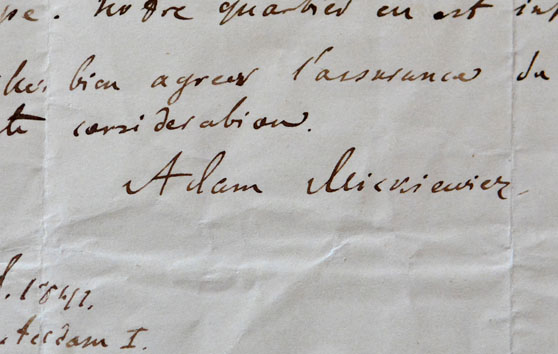 pe. Notre quartier en est inf
bien agreer l'assurance du
te consideration.
Adam Mickiewicz
1841.
Amsterdam I.